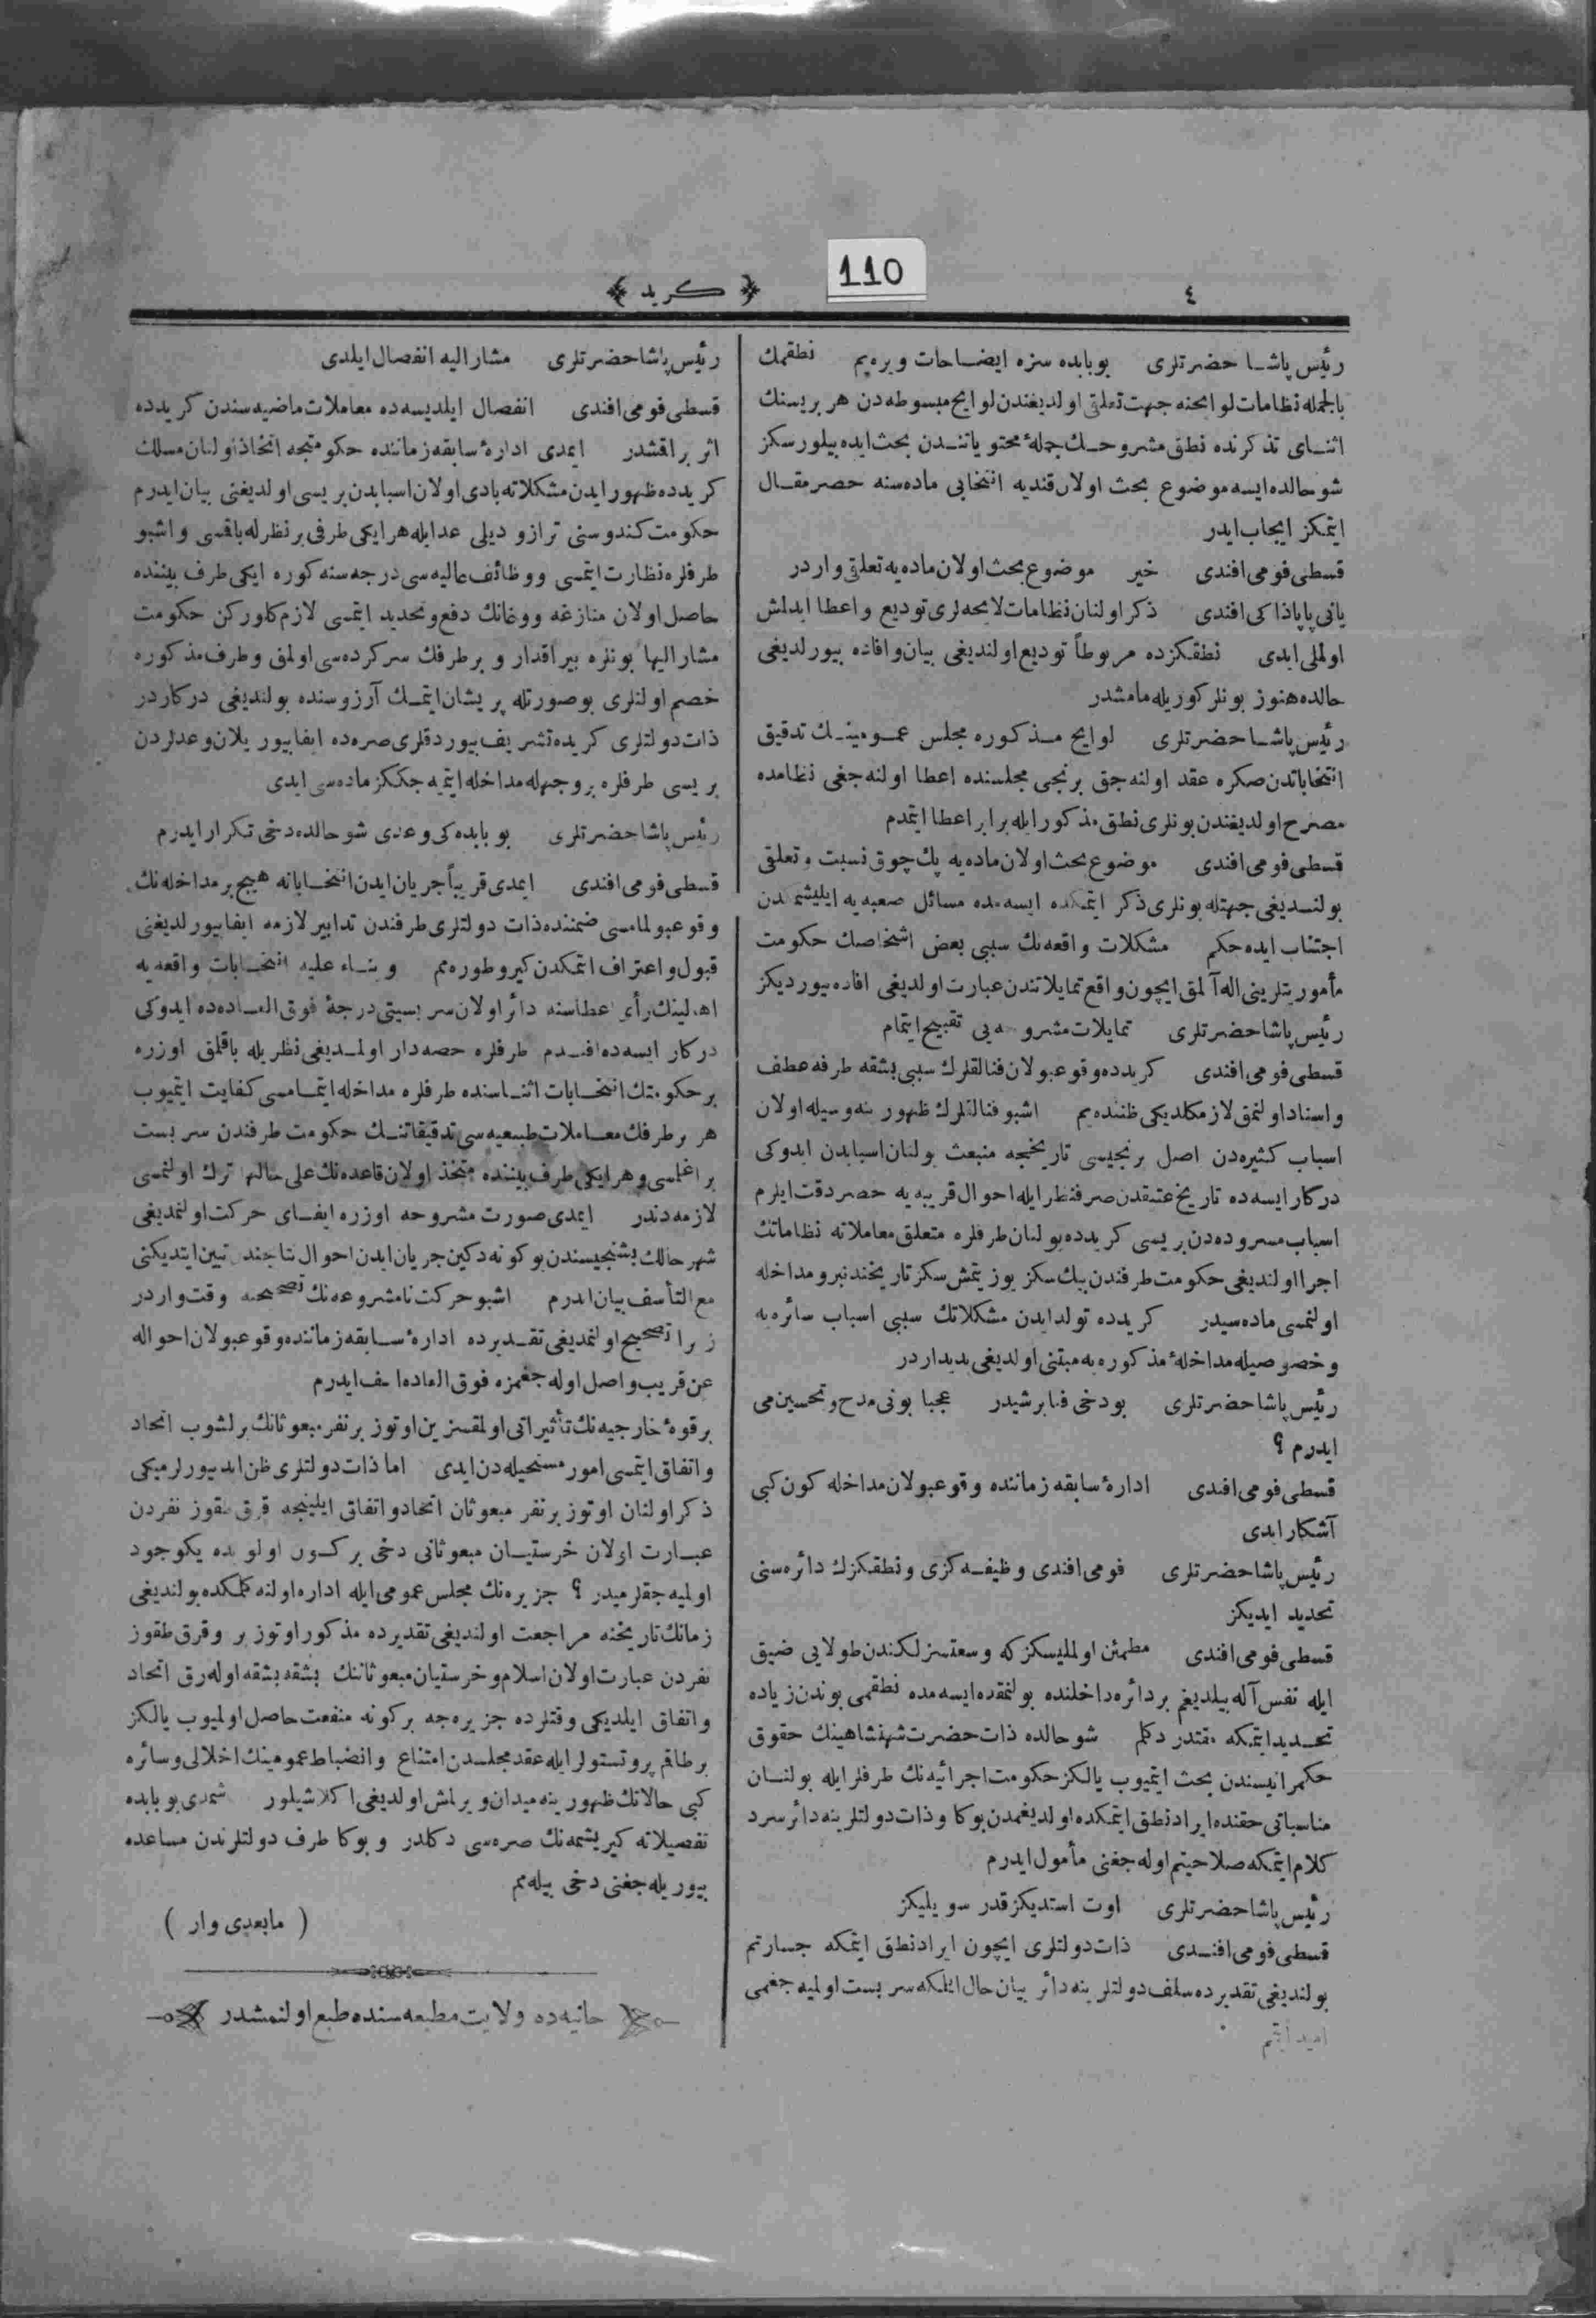 110
٤
﴿ كريد ﴾
رئيس پاشا حضرتلرى بوبابده سزه ايضاحات ويره‌يم نطقمك
بالجمله نظامات لوايحنه جهت تعلقى اولديغندن لوايح مبسوطه‌دن هر بريسنك
اثناى تذكرنده نطق مشروحك جملهٔ محتوياتندن بحث ايده بيلورسكز
شو حالده ايسه موضوع بحث اولان قنديه انتخابى ماده‌سنه حصر مقال
ايتمكز ايجاب ايدر
قسطى فومى افندى خير موضوع بحث اولان ماده‌يه تعلقى واردر
يانى پاپاذاكى افندى ذكر اولنان نظامات لايحه‌لرى توديع و اعطا ايدلمش
اولملى ايدى نطقكزده مربوطاً توديع اولنديغى بيان و افاده بيورلديغى
حالده هنوز بونلر كوريله‌مامشدر
رئيس پاشا حضرتلرى لوايح مذكوره مجلس عمومينك تدقيق
انتخاباتدن صكره عقد اولنه‌جق برنجى مجلسنده اعطا اولنه‌جغى نظامده
مصرح اولديغندن بونلرى نطق مذكور ايله برابر اعطا ايتدم
قسطى فومى افندى موضوع بحث اولان ماده‌يه پك چوق نسبت و تعلقى
بولنديغى جهتله بونلرى ذكر ايتمكده ايسه‌مده مسائل صعبه‌يه ايليشمكدن
اجتناب ايده‌جكم مشكلات واقعه‌نك سببى بعض اشخاصك حكومت
مأموريتلرينى اله آلمق ايچون واقع تمايلاتندن عبارت اولديغى افاده بيورديكز
رئيس پاشا حضرتلرى تمايلات مشروعه‌يى تقبيح ايتمام
قسطى فومى افندى كريدده وقوعبولان فنالقلرك سببى بشقه طرفه عطف
و اسناد اولنمق لازمكلديكى ظننده‌يم اشبو فنالقلرك ظهورينه وسيله اولان
اسباب كثيره‌دن اصل برنجيسى تاريخجه منبعث بولنان اسبابدن ايدوكى
دركار ايسه‌ده تاريخ عتيقدن صرفنظر ايله احوال قريبه‌يه حصر دقت ايلرم
اسباب مسروده‌دن بريسى كريدده بولنان طرفلره متعلق معاملاته نظاماتك
اجرا اولنديغى حكومت طرفندن بيك سكز يوز يتمش سكز تاريخندنبرو مداخله
اولنمسى ماده‌سيدر كريدده تولد ايدن مشكلاتك سببى اسباب سائره‌يه
و خصوصيله مداخلهٔ مذكوره‌يه مبتنى اولديغى بديداردر
رئيس پاشا حضرتلرى بودخى فنا برشيدر عجبا بونى مدح و تحسين مى
ايدرم ؟
قسطى فومى افندى ادارهٔ سابقه زماننده وقوعبولان مداخله كون كبى
آشكار ايدى
رئيس پاشا حضرتلرى فومى افندى وظيفه‌كزى و نطقكزك دائره‌سنى
تحديد ايديكز
قسطى فومى افندى مطمئن اولمليسكز كه وسعتسزلكندن طولايى ضيق
ايله نفس آله بيلديغم بر دائره داخلنده بولنمقده ايسه‌مده نطقمى بوندن زياده
تحديد ايتمكه مقتدر دكلم شو حالده ذات حضرت شهنشاهينك حقوق
حكمرانيسندن بحث ايتميوب يالكز حكومت اجرائيه‌نك طرفلر ايله بولنان
مناسباتى حقنده ايراد نطق ايتمكده اولديغمدن بوكا و ذات دولتلرينه دائر سرد
كلام ايتمكه صلاحيتم اوله‌جغنى مأمول ايدرم
رئيس پاشا حضرتلرى اوت استديكز قدر سويليكز
قسطى فومى افندى ذات دولتلرى ايچون ايراد نطق ايتمكه جسارتم
بولنديغى تقديرده سلف دولتلرينه دائر بيان حال ايتمكه سربست اولميه‌جغمى
اميد ايتمم
رئيس پاشا حضرتلرى مشاراليه انفصال ايلدى
قسطى فومى افندى انفصال ايلديسه‌ده معاملات ماضيه‌سندن كريدده
اثر براقشدر ايمدى ادارهٔ سابقه زماننده حكومتجه اتخاذ اولنان مسلك
كريدده ظهور ايدن مشكلاته بادى اولان اسبابدن بريسى اولديغنى بيان ايدرم
حكومت كندوسنى ترازو ديلى عد ايله هر ايكى طرفى بر نظرله باقمسى و اشبو
طرفلره نظارت ايتمسى و وظائف عاليه‌سى درجه‌سنه كوره ايكى طرف بيننده
حاصل اولان منازعه و وغانك دفع و تحديد ايتمسى لازم كلوركن حكومت
مشاراليها بونلره بيراقدار و بر طرفك سركرده‌سى اولمق و طرف مذكوره
خصم اولنلرى بوصورتله پريشان ايتمك آرزوسنده بولنديغى دركاردر
ذات دولتلرى كريده تشريف بيوردقلرى صره‌ده ايفا بيوريلان وعدلردن
بريسى طرفلره بروجهله مداخله ايتميه‌جككز ماده‌سى ايدى
رئيس پاشا حضرتلرى بوبابده‌كى وعدى شو حالده دخى تكرار ايدرم
قسطى فومى افندى ايمدى قريباً جريان ايدن انتخاباته هيچ بر مداخله‌نك
وقوعبولمامسى ضمننده ذات دولتلرى طرفندن تدابير لازمه ايفا بيورلديغنى
قبول و اعتراف ايتمكدن كيرو طوره‌مم و بناء عليه انتخابات واقعه‌يه
اهالينك رأى اعطاسنه دائر اولان سربستى درجهٔ فوق العاده‌ده ايدوكى
دركار ايسه‌ده افندم طرفلره حصه‌دار اولمديغى نظريله باقلمق اوزره
بر حكومتك انتخابات اثناسنده طرفلره مداخله ايتمامسى كفايت ايتميوب
هر بر طرفك معاملات طبيعيه‌سى تدقيقاتنك حكومت طرفندن سربست
براغلمسى و هر ايكى طرف بيننده متخذ اولان قاعده‌نك على حالها ترك اولنمسى
لازمه‌دندر ايمدى صورت مشروحه اوزره ايفاى حركت اولنمديغى
شهر حالك بشنجيسندن بوكونه دكين جريان ايدن احوال نتايجندن تبين ايتديكنى
مع التأسف بيان ايدرم اشبو حركت نامشروعه‌نك تصحيحنه وقت واردر
زيرا تصحيح اولنمديغى تقديرده ادارهٔ سابقه زماننده وقوعبولان احواله
عن قريب واصل اوله‌جغمزه فوق العاده اسف ايدرم
بر قوهٔ خارجيه‌نك تأثيراتى اولمقسزين اوتوز بر نفر مبعوثانك برلشوب اتحاد
و اتفاق ايتمسى امور مستحيله‌دن ايدى اما ذات دولتلرى ظن ايدييورلرميكى
ذكر اولنان اوتوز بر نفر مبعوثان اتحاد و اتفاق ايلينجه قرق طقوز نفردن
عبارت اولان خرستيان مبعوثانى دخى بركون اولوبده يكوجود
اولميه‌جقلرميدر ؟ جزيره‌نك مجلس عمومى ايله اداره اولنه‌كلمكده بولنديغى
زمانك تاريخنه مراجعت اولنديغى تقديرده مذكور اوتوز بر و قرق طقوز
نفردن عبارت اولان اسلام و خرستيان مبعوثانك بشقه بشقه اوله‌رق اتحاد
و اتفاق ايلديكى وقتلرده جزيره‌جه بركونه منفعت حاصل اولميوب يالكز
بر طاقم پروتستولر ايله عقد مجلسدن امتناع و انضباط عمومينك اخلالى و سائره
كبى حالاتك ظهورينه ميدان ويرلمش اولديغى اكلاشيلور شمدى بوبابده
تفصيلاته كيريشمه‌نك صره‌سى دكلدر و بوكا طرف دولتلرندن مساعده
بيوريله‌جغنى دخى بيله‌مم
( مابعدى وار )
حانيه‌ده ولايت مطبعه‌سنده طبع اولنمشدر